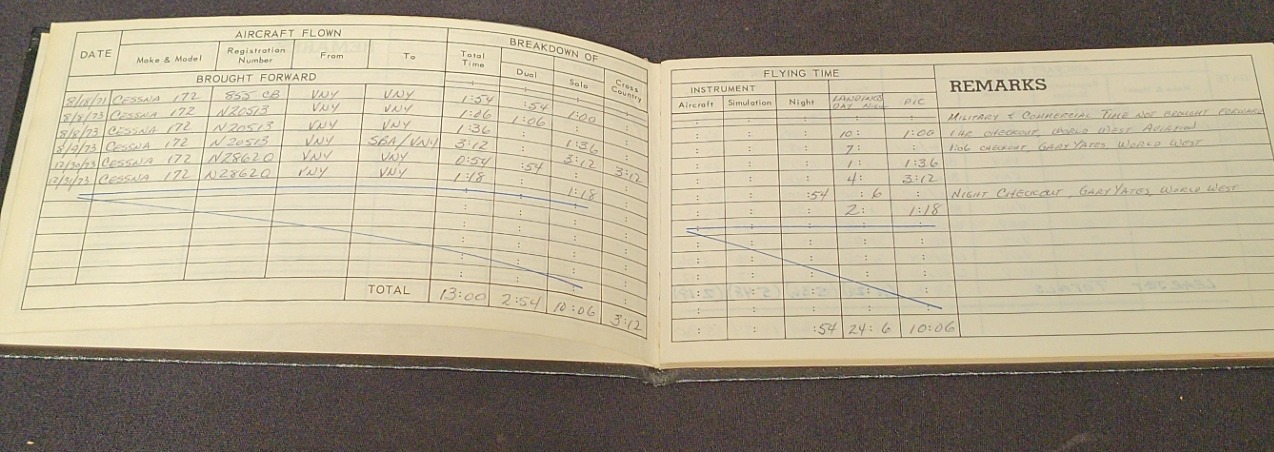 AIRCRAFT FLOWN BREAKDOWN OF
DATE Make & Model Registration Number From To Total Time Dual Solo Cross Country
BROUGHT FORWARD
8/8/71 CESSNA 172 855 CB VNY VNY 1:54 :54 1:00
8/8/73 CESSNA 172 N20513 VNY VNY 1:06 1:06
8/8/73 CESSNA 172 N20513 VNY VNY 1:36 1:36
8/9/73 CESSNA 172 N20513 VNY SBA/VNY 3:12 3:12 3:12
12/30/73 CESSNA 172 N2862Q VNY VNY 0:54 :54
12/31/73 CESSNA 172 N2862Q VNY VNY 1:18 1:18
TOTAL 13:00 2:54 10:06 3:12
FLYING TIME
INSTRUMENT REMARKS
Aircraft Simulation Night LANDINGS DAY NIGHT PIC
MILITARY & COMMERCIAL TIME NOT BROUGHT FORWARD
10: 1:00 1 HR CHECKOUT, WORLD WEST AVIATION
7: 1:06 CHECKOUT, GARY YATES, WORLD WEST
1: 1:36
4: 3:12
:54 :6 NIGHT CHECKOUT, GARY YATES, WORLD WEST
2: 1:18
:54 24:6 10:06